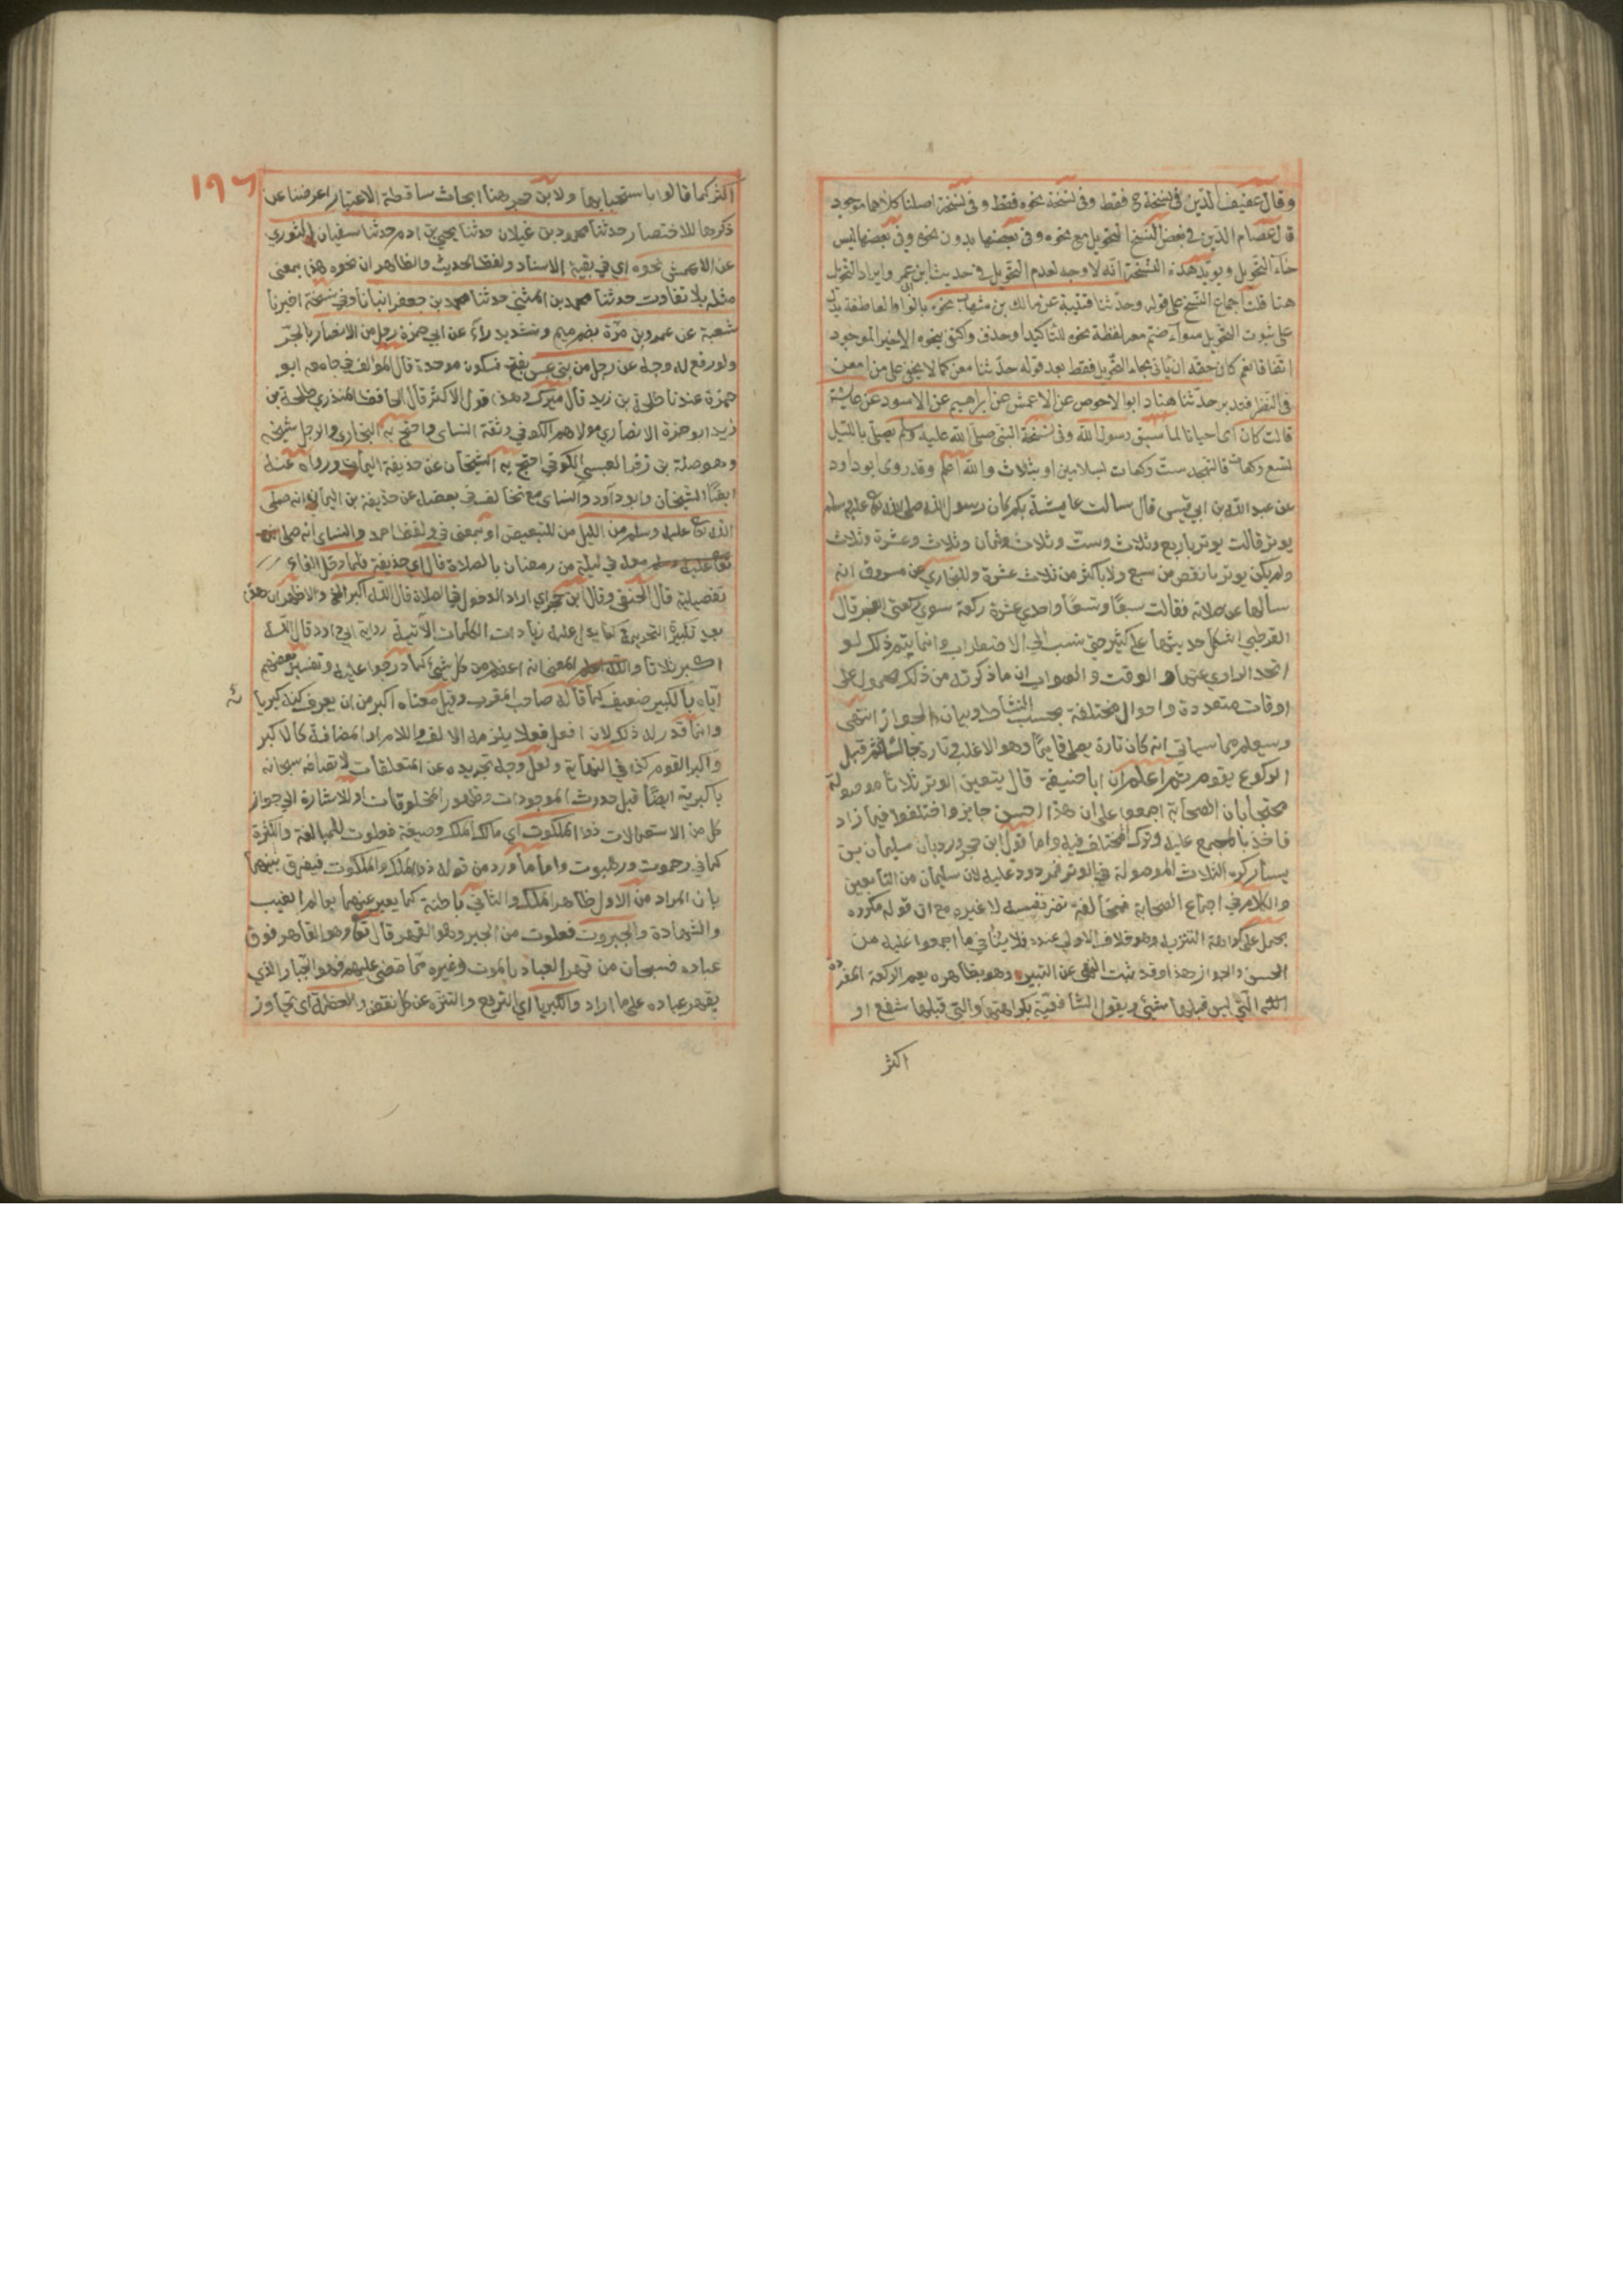 وقال عفيف الدين في نسخة ح فقط وفي نسخة نحوه فقط وفي نسخة اصلنا كلاهما موجود
قال عصام الدين في بعض النسخ التحويل مع نحوه وفي بعضها بدون نحوه وفي بعضها ليس
حاء التحويل ويؤيد هذه النسخة انه لا وجه لعدم التحويل في حديث ابن عمر وايراد التحويل
هنا قلت اجماع النسخ على قوله وحدثنا قتيبة عن مالك بن شهاب نحوه بالواو العاطفة يدل
على ثبوت التحويل سواء ضم معه لفظة نحوه للتاكيد او حذف واكتفى بنحوه الاخير الموجود
اتفاقا نعم كان حقه ان ياتي بحاء التحويل فقط بعد قوله حدثنا معن كما لا يخفى على من امعن
في النظر فتدبر حدثنا هناد ابو الاحوص عن الاعمش عن ابرهيم عن الاسود عن عايشة
قالت كان اى احيانا لما سبق رسول الله وفي نسخة النبي صلى الله عليه وسلم يصلى بالليل
تسع ركعات فالتهجد ست ركعات بسلامين او بثلاث والله اعلم وقد روى ابو داود
عن عبد الله بن ابي قيس قال سالت عايشة بكم كان رسول الله صلى الله تع عليه وسلم
يوتر قالت يوتر باربع وثلاث وست وثلاث وثمان وثلاث وعشرة وثلاث
ولم يكن يوتر بانقص من سبع ولا باكثر من ثلاث عشرة وللبخاري عن مسروق انه
سالها عن صلاته فقالت سبعًا وتسعًا واحدي عشرة ركعة سوي ركعتي الفجر قال
القرطبي اشكل حديثها على كثير حتى نسب الى الاضطراب وانما يتم ذلك لو
اتحد الراوي عنها و الوقت والصواب ان ما ذكرته من ذلك محمول على
اوقات متعددة واحوال مختلفة بحسب النشاط وبيان الجواز انتهى
وسيعلم مما سياتي انه كان تارة يصلى قايمًا وهو الاغلب وتارة جالسا ثم قبل
الركوع يقوم ثم اعلم ان ابا حنيفة قال يتعين الوتر ثلاثا موصولة
محتجا بان الصحابة اجمعوا على ان هذا احسن جايز واختلفوا فيما زاد
فاخذ بالمجمع عليه وترك المختلف فيه واما قول ابن حجر ورد بان سليمان بن
يسار كره الثلاث الموصولة في الوتر فمردود عليه لان سليمان من التابعين
والكلام في اجماع الصحابة فمخالفته تضر نفسه لا غيره مع ان قوله مكروه
يحمل على كراهة التنزيه وهو خلاف الاولى عنده فلا ينافي ما اجمعوا عليه من
الحسن والجواز هذا وقد ثبت النهي عن البتيرا وهو بظاهره يعم الركعة المفردة
التي ليس قبلها شيئ ويقول الشافعية بكراهتها والتي قبلها شفع او
اكثر
١٩٦
اكثر كما قالوا باستحبابها ولابن حجر هنا ابحاث ساقطة الاعتبار اعرضنا عن
ذكرها للاختصار حدثنا محمود بن غيلان حدثنا يحيى بن ادم حدثنا سفيان الثوري
عن الاعمش نحوه اي في بقية الاسناد ولفظ الحديث والظاهر ان نحوه هذا بمعنى
مثله بلا تفاوت حدثنا محمد بن المثنى حدثنا محمد بن جعفر انبانا وفي نسخة اخبرنا
شعبة عن عمرو بن مرة بضم ميم وتشديد راء عن ابي حمزة رجل من الانصار بالجر
ولو رفع له وجه عن رجل من بني عبس بفتح فسكون موحدة قال المؤلف في جامعه ابو
حمزة عندنا طلحة بن زيد قال ميرك وهذا قول الاكثر قال الحافظ المنذري طلحة بن
زيد ابو حمزة الانصاري مولاهم الكوفي وثقه النساى واحتج به البخارى والرجل شيخه
وهو صلة بن زفر العبسي الكوفي احتج به الشيخان عن حذيفة اليمان ورواه عنه
ايضًا الشيخان وابو داود والنساى مع تخالف في بعضه عن حذيفة بن اليمان انه صلى
الله تع عليه وسلم من الليل من للتبعيض او بمعنى في ولفظ احمد والنساى انه صلى مع
تع عليه وسلم معه في ليلة من رمضان بالصلاة قال اي حذيفة فلما دخل الفاء
تفصيلية قال الحنفي وقال ابن حجر اي اراد الدخول في الصلاة قال الله اكبر الخ والاظهر ان هذا
بعد تكبيرة التحريمة كما يدل عليه زيادات الكلمات الآتية رواية ابي داود قال الله
اكبر ثلاثا والمعنى انه اعظم من كل شيئ كما درجوا عليه وتفسير بعضهم
اياه بالكبير ضعيف كما قاله صاحب المغرب وقيل معناه اكبر من ان يعرف كنه كبريائه
وانما قدر له ذلك لان افعل فعلا يلزمه الالف واللام او المضافة كالاكبر
واكبر القوم كذا في النهاية ولعل وجه تجريده عن المتعلقات لاتصافه سبحانه
باكبرية ايضًا قبل حدوث الموجودات وظهور المخلوقات او للاشارة الى جواز
كل من الاستعمالات ذو الملكوت اي مالك الملك وصيغة فعلوت للمبالغة والكثرة
كما في رحموت ورهبوت واما ما ورد من قوله ذو الملك والملكوت فيفرق بينهما
بان المراد من الاول ظاهر الملك والثاني باطنه كما يعبر عنهما بعالم الغيب
والشهادة والجبروت فعلوت من الجبر وهو القهر قال تع وهو القاهر فوق
عباده فسبحان من قهر العباد بالموت وغيره مما قضى عليهم فهو الجبار الذي
يقهر عباده على ما اراد والكبريا اي الترفع والتنزه عن كل نقص والعظمة اى تجاوز